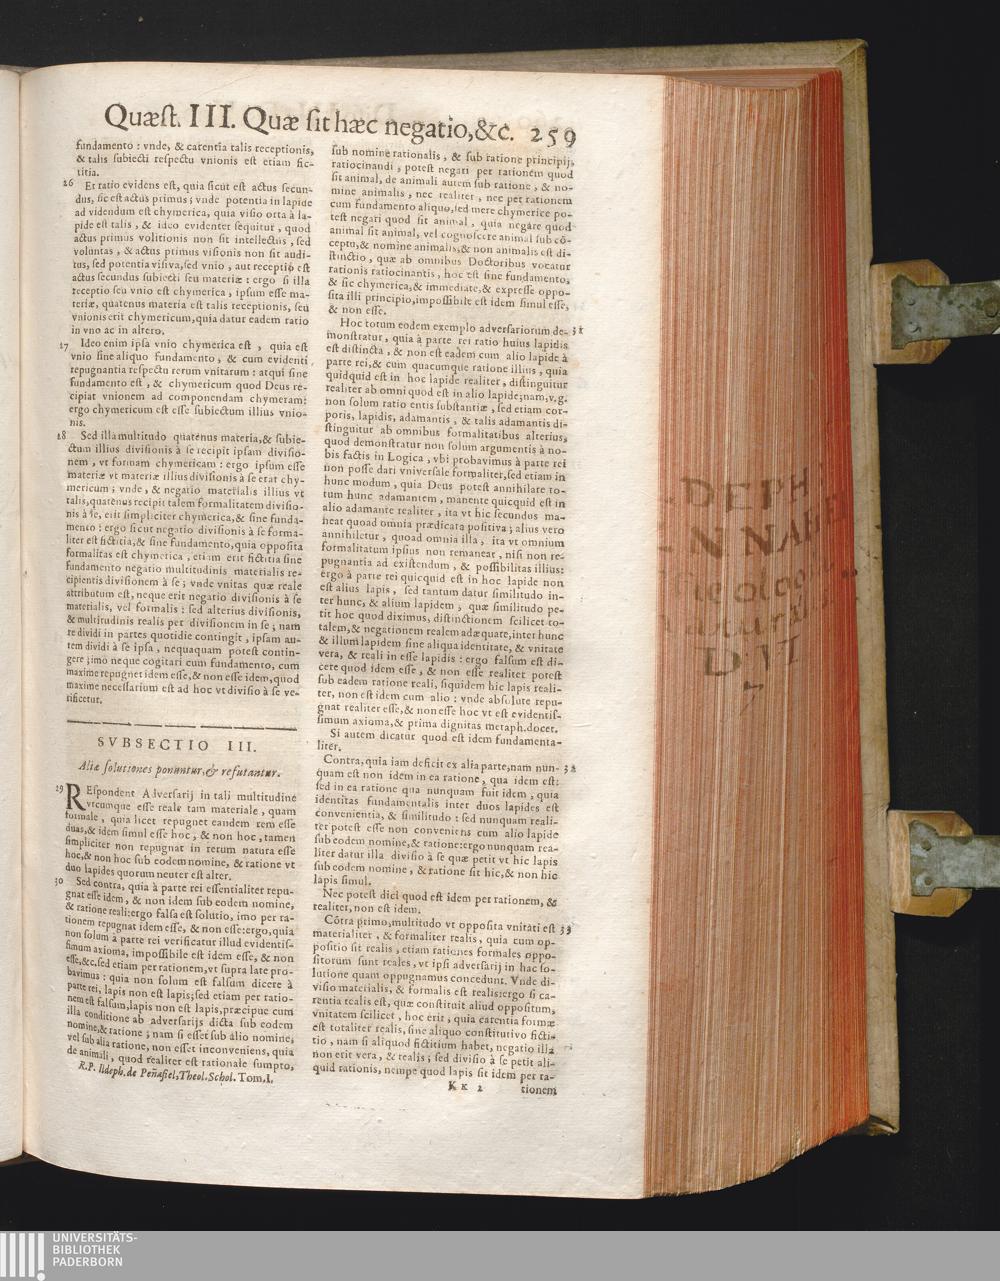 Quæst. III. Quæ sit hæc negatio,&c. 259
fundamento : vnde, & carentia talis receptionis,
& talis subiecti respectu vnionis est etiam fic-
titia.
26 Et ratio evidens est, quia sicut est actus secun-
dus, sic est actus primus; vnde potentia in lapide
ad videndum est chymerica, quia visio orta à la-
pide est talis, & ideo evidenter sequitur, quod
actus primus volitionis non sit intellectus, sed
voluntas, & actus primus visionis non sit audi-
tus, sed potentia visiva, sed vnio, aut receptio est
actus secundus subiecti seu materiæ : ergo si illa
receptio seu vnio est chymerica, ipsum esse ma-
teriæ, quatenus materia est talis receptionis, seu
vnionis erit chymericum, quia datur eadem ratio
in vno ac in altero.
27 Ideo enim ipsa vnio chymerica est, quia est
vnio sine aliquo fundamento, & cum evidenti
repugnantia respectu rerum vnitarum : atqui sine
fundamento est, & chymericum quod Deus re-
cipiat vnionem ad componendam chymeram:
ergo chymericum est esse subiectum illius vnio-
nis.
28 Sed illa multitudo quatenus materia, & subie-
ctum illius divisionis à se recipit ipsam divisio-
nem, vt formam chymericam : ergo ipsum esse
materiæ vt materiæ illius divisionis à se erat chy-
mericum; vnde, & negatio materialis illius vt
talis, quatenus recipit talem formalitatem divisio-
nis à se, erit simpliciter chymerica, & sine funda-
mento : ergo sicut negatio divisionis à se forma-
liter est fictitia, & sine fundamento, quia opposita
formalitas est chymerica, etiam erit fictitia sine
fundamento negatio multitudinis materialis re-
cipientis divisionem à se; vnde vnitas quæ reale
attributum est, neque erit negatio divisionis à se
materialis, vel formalis : sed alterius divisionis,
& multitudinis realis per divisionem in se; nam
re dividi in partes quotidie contingit, ipsam au-
tem dividi à se ipsa, nequaquam potest contin-
gere; imo neque cogitari cum fundamento, cum
maxime repugnet idem esse, & non esse idem, quod
maxime necessarium est ad hoc vt divisio à se ve-
rificetur.
SVBSECTIO III.
Aliæ solutiones ponuntur, & refutantur.
29 REspondent Adversarij in tali multitudine
vtcumque esse reale tam materiale, quam
formale, quia licet repugnet eandem rem esse
duas, & idem simul esse hoc, & non hoc, tamen
simpliciter non repugnat in rerum natura esse
hoc, & non hoc sub eodem nomine, & ratione vt
duo lapides quorum neuter est alter.
30 Sed contra, quia à parte rei essentialiter repu-
gnat esse idem, & non idem sub eodem nomine,
& ratione reali: ergo falsa est solutio, imo per ra-
tionem repugnat idem esse, & non esse: ergo, quia
non solum à parte rei verificatur illud evidentis-
simum axioma, impossibile est idem esse, & non
esse, &c. sed etiam per rationem, vt supra late pro-
bavimus : quia non solum est falsum dicere à
parte rei, lapis non est lapis; sed etiam per ratio-
nem est falsum, lapis non est lapis, præcipue cum
illa conditione ab adversarijs dicta sub eodem
nomine, & ratione ; nam si esset sub alio nomine,
vel sub alia ratione, non esset inconveniens, quia
de animali, quod realiter est rationale sumpto,
R.P. Ildeph. de Peñafiel, Theol. Schol. Tom.I.
sub nomine rationalis, & sub ratione principij,
ratiocinandi, potest negari per rationem quod
sit animal, de animali autem sub ratione, & no-
mine animalis, nec realiter, nec per rationem
cum fundamento aliquo, sed mere chymerice po-
test negari quod sit animal, quia negare quod
animal sit animal, vel cognoscere animal sub cō-
ceptu, & nomine animalis, & non animalis est di-
stinctio, quæ ab omnibus Doctoribus vocatur
rationis ratiocinantis, hoc est sine fundamento,
& sic chymerica, & immediate, & expresse oppo-
sita illi principio, impossibile est idem simul esse,
& non esse.
Hoc totum eodem exemplo adversariorum de- 31
monstratur, quia à parte rei ratio huius lapidis
est distincta, & non est eadem cum alio lapide à
parte rei, & cum quacumque ratione illius, quia
quidquid est in hoc lapide realiter, distinguitur
realiter ab omni quod est in alio lapide; nam, v.g.
non solum ratio entis substantiæ, sed etiam cor-
poris, lapidis, adamantis, & talis adamantis di-
stinguitur ab omnibus formalitatibus alterius,
quod demonstratur non solum argumentis à no-
bis factis in Logica, vbi probavimus à parte rei
non posse dari vniversale formaliter, sed etiam in
hunc modum, quia Deus potest annihilare to-
tum hunc adamantem, manente quicquid est in
alio adamante realiter, ita vt hic secundus ma-
neat quoad omnia prædicata positiva; alius vero
annihiletur, quoad omnia illa, ita vt omnium
formalitatum ipsius non remaneat, nisi non re-
pugnantia ad existendum, & possibilitas illius:
ergo à parte rei quicquid est in hoc lapide non
est alius lapis, sed tantum datur similitudo in-
ter hunc, & alium lapidem, quæ similitudo pe-
tit hoc quod diximus, distinctionem scilicet to-
talem, & negationem realem adæquate, inter hunc
& illum lapidem sine aliqua identitate, & vnitate
vera, & reali in esse lapidis : ergo falsum est di-
cere quod idem esse, & non esse realiter potest
sub eadem ratione reali, siquidem hic lapis reali-
ter, non est idem cum alio : vnde absolute repu-
gnat realiter esse, & non esse hoc vt est evidentis-
simum axioma, & prima dignitas metaph. docet.
Si autem dicatur quod est idem fundamenta-
liter.
Contra, quia iam deficit ex alia parte, nam nun- 32
quam est non idem in ea ratione, qua idem est:
sed in ea ratione qua nunquam fuit idem, quia
identitas fundamentalis inter duos lapides est
convenientia, & similitudo : sed nunquam reali-
ter potest esse non conveniens cum alio lapide
sub eodem nomine, & ratione: ergo nunquam rea-
liter datur illa divisio à se quæ petit vt hic lapis
sub eodem nomine, & ratione sit hic, & non hic
lapis simul.
Nec potest dici quod est idem per rationem, &
realiter, non est idem.
Cōtra primo, multitudo vt opposita vnitati est 33
materialiter, & formaliter realis, quia cum op-
positio sit realis, etiam rationes formales oppo-
sitorum sunt reales, vt ipsi adversarij in hac so-
lutione quam oppugnamus concedunt. Vnde di-
visio materialis, & formalis est realis: ergo si ca-
rentia realis est, quæ constituit aliud oppositum,
vnitatem scilicet, hoc erit, quia carentia formæ
est totaliter realis, sine aliquo constitutivo ficti-
tio, nam si aliquod fictitium habet, negatio illa
non erit vera, & realis; sed divisio à se petit ali-
quid rationis, nempe quod lapis sit idem per ra-
Kk 2 tionem
UNIVERSITÄTS-
BIBLIOTHEK
PADERBORN